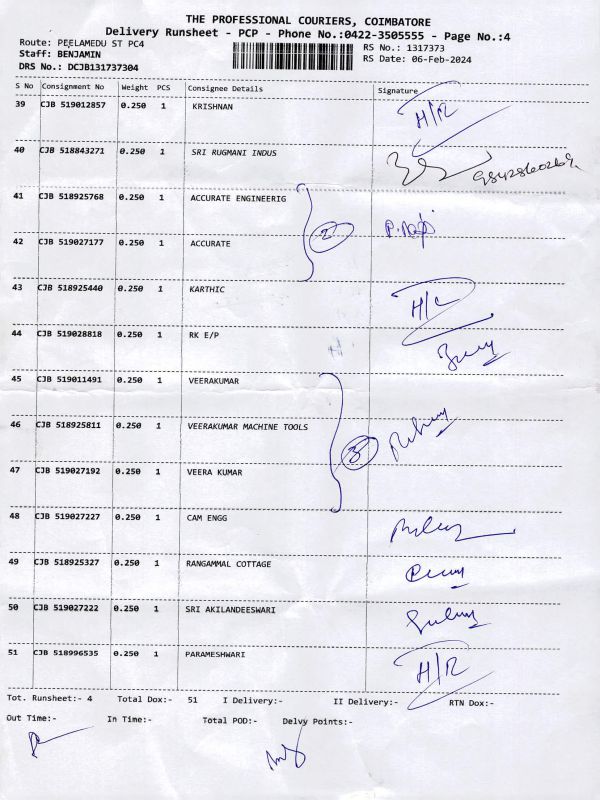 THE PROFESSIONAL COURIERS, COIMBATORE
Delivery Runsheet - PCP - Phone No.:0422-3505555 - Page No.:4
Route: PEELAMEDU ST PC4
RS No.: 1317373
Staff: BENJAMIN
RS Date: 06-Feb-2024
DRS No.: DCJB131737304
S No Consignment No Weight PCS Consignee Details Signature
39 CJB 519012857 0.250 1 KRISHNAN H/R
40 CJB 518843271 0.250 1 SRI RUGMANI INDUS
41 CJB 518925768 0.250 1 ACCURATE ENGINEERIG
2
42 CJB 519027177 0.250 1 ACCURATE
43 CJB 518925440 0.250 1 KARTHIC H/C
44 CJB 519028818 0.250 1 RK E/P
45 CJB 519011491 0.250 1 VEERAKUMAR
46 CJB 518925811 0.250 1 VEERAKUMAR MACHINE TOOLS
3
47 CJB 519027192 0.250 1 VEERA KUMAR
48 CJB 519027227 0.250 1 CAM ENGG
49 CJB 518925327 0.250 1 RANGAMMAL COTTAGE
50 CJB 519027222 0.250 1 SRI AKILANDEESWARI
51 CJB 518996535 0.250 1 PARAMESHWARI H/R
Tot. Runsheet:- 4 Total Dox:- 51 I Delivery:- II Delivery:- RTN Dox:-
Out Time:- In Time:- Total POD:- Delvy Points:-